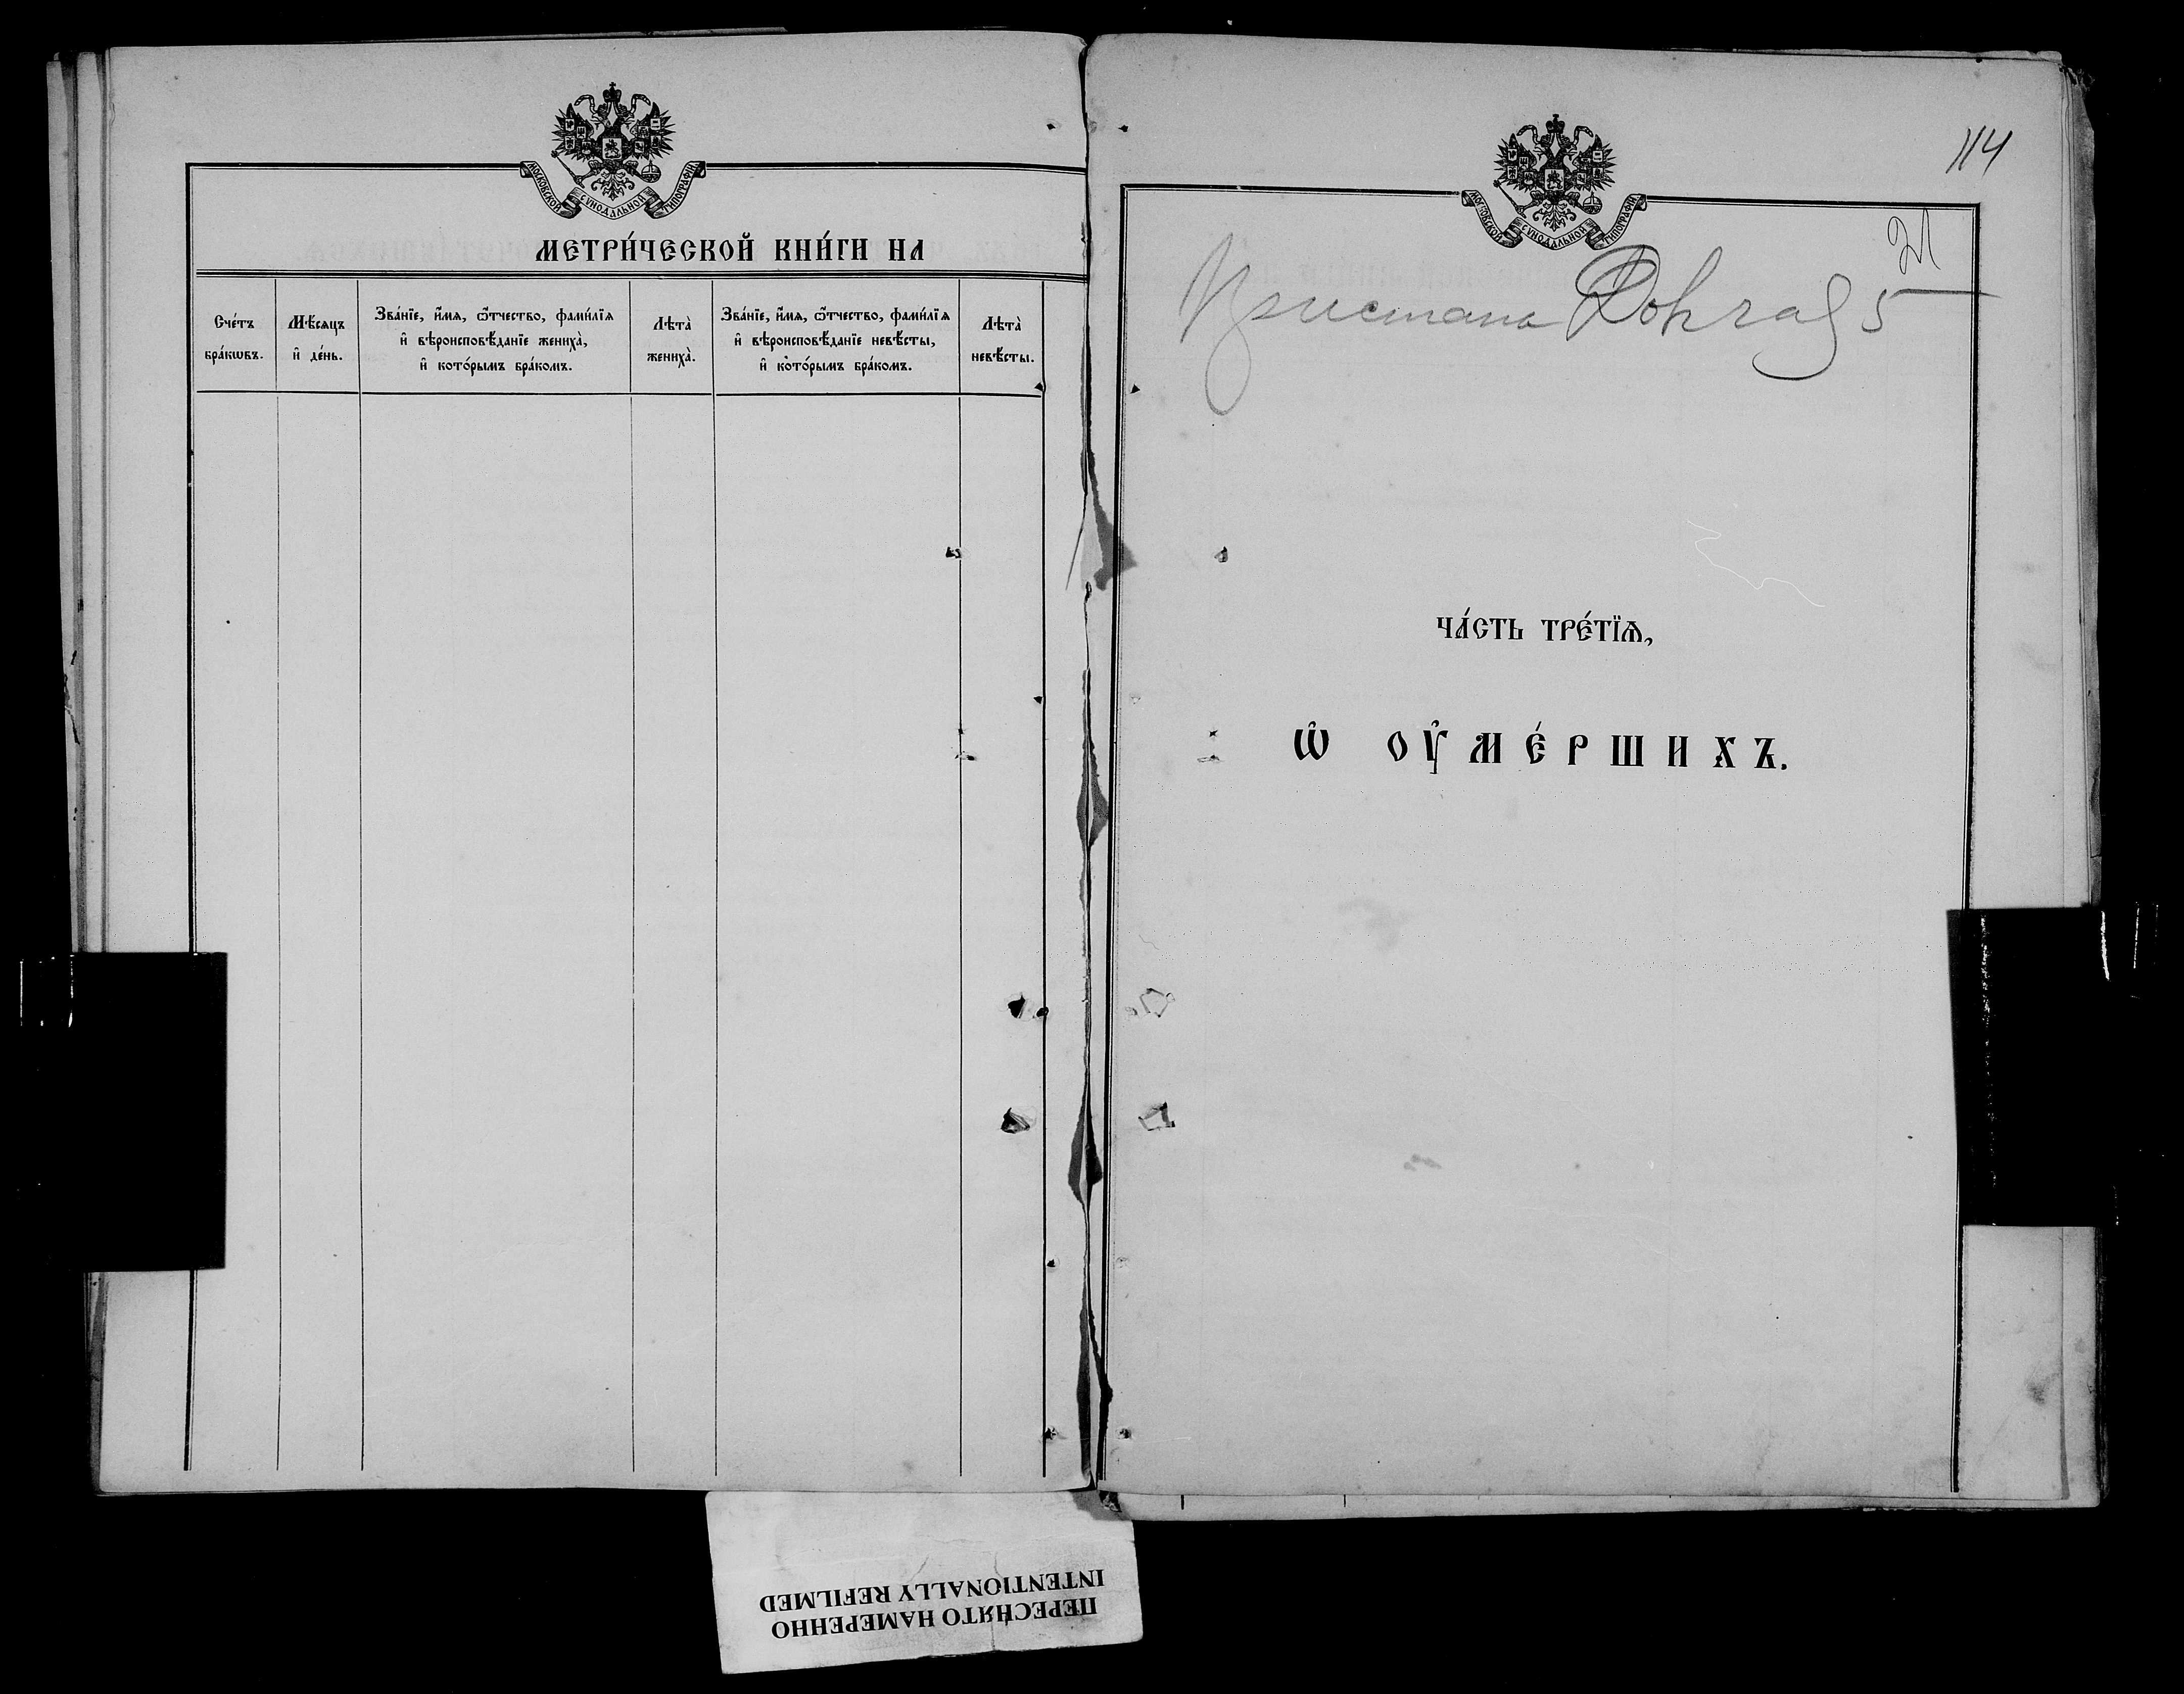 МОСКОВСКОЙ СѴНОДАЛЬНОЙ ТИПОГРАФІИ
МЕТРИ́ЧЕСКОЙ КНИ́ГИ НА
Сче́тъ бра́кѡвъ.
Мѣ́сяцъ и҆ де́нь.
Зва́нїе, и҆́мя, ѻ҆́тчество, фами́лїя
и҆ вѣроисповѣ́данїе жениха̀,
и҆ кото́рымъ бра́комъ.
Лѣта̀ жениха̀.
Зва́нїе, и҆́мя, ѻ҆́тчество, фами́лїя
и҆ вѣроисповѣ́данїе невѣ́сты,
и҆ кото́рымъ бра́комъ.
Лѣта̀ невѣ́сты.
114
МОСКОВСКОЙ СѴНОДАЛЬНОЙ ТИПОГРАФІИ
21
5
ЧА́СТЬ ТРЕ́ТЇѦ,
Ѡ҆ ОУ҆МЕ́РШИХЪ.
ПЕРЕСНЯТО НАМЕРЕННО
INTENTIONALLY REFILMED